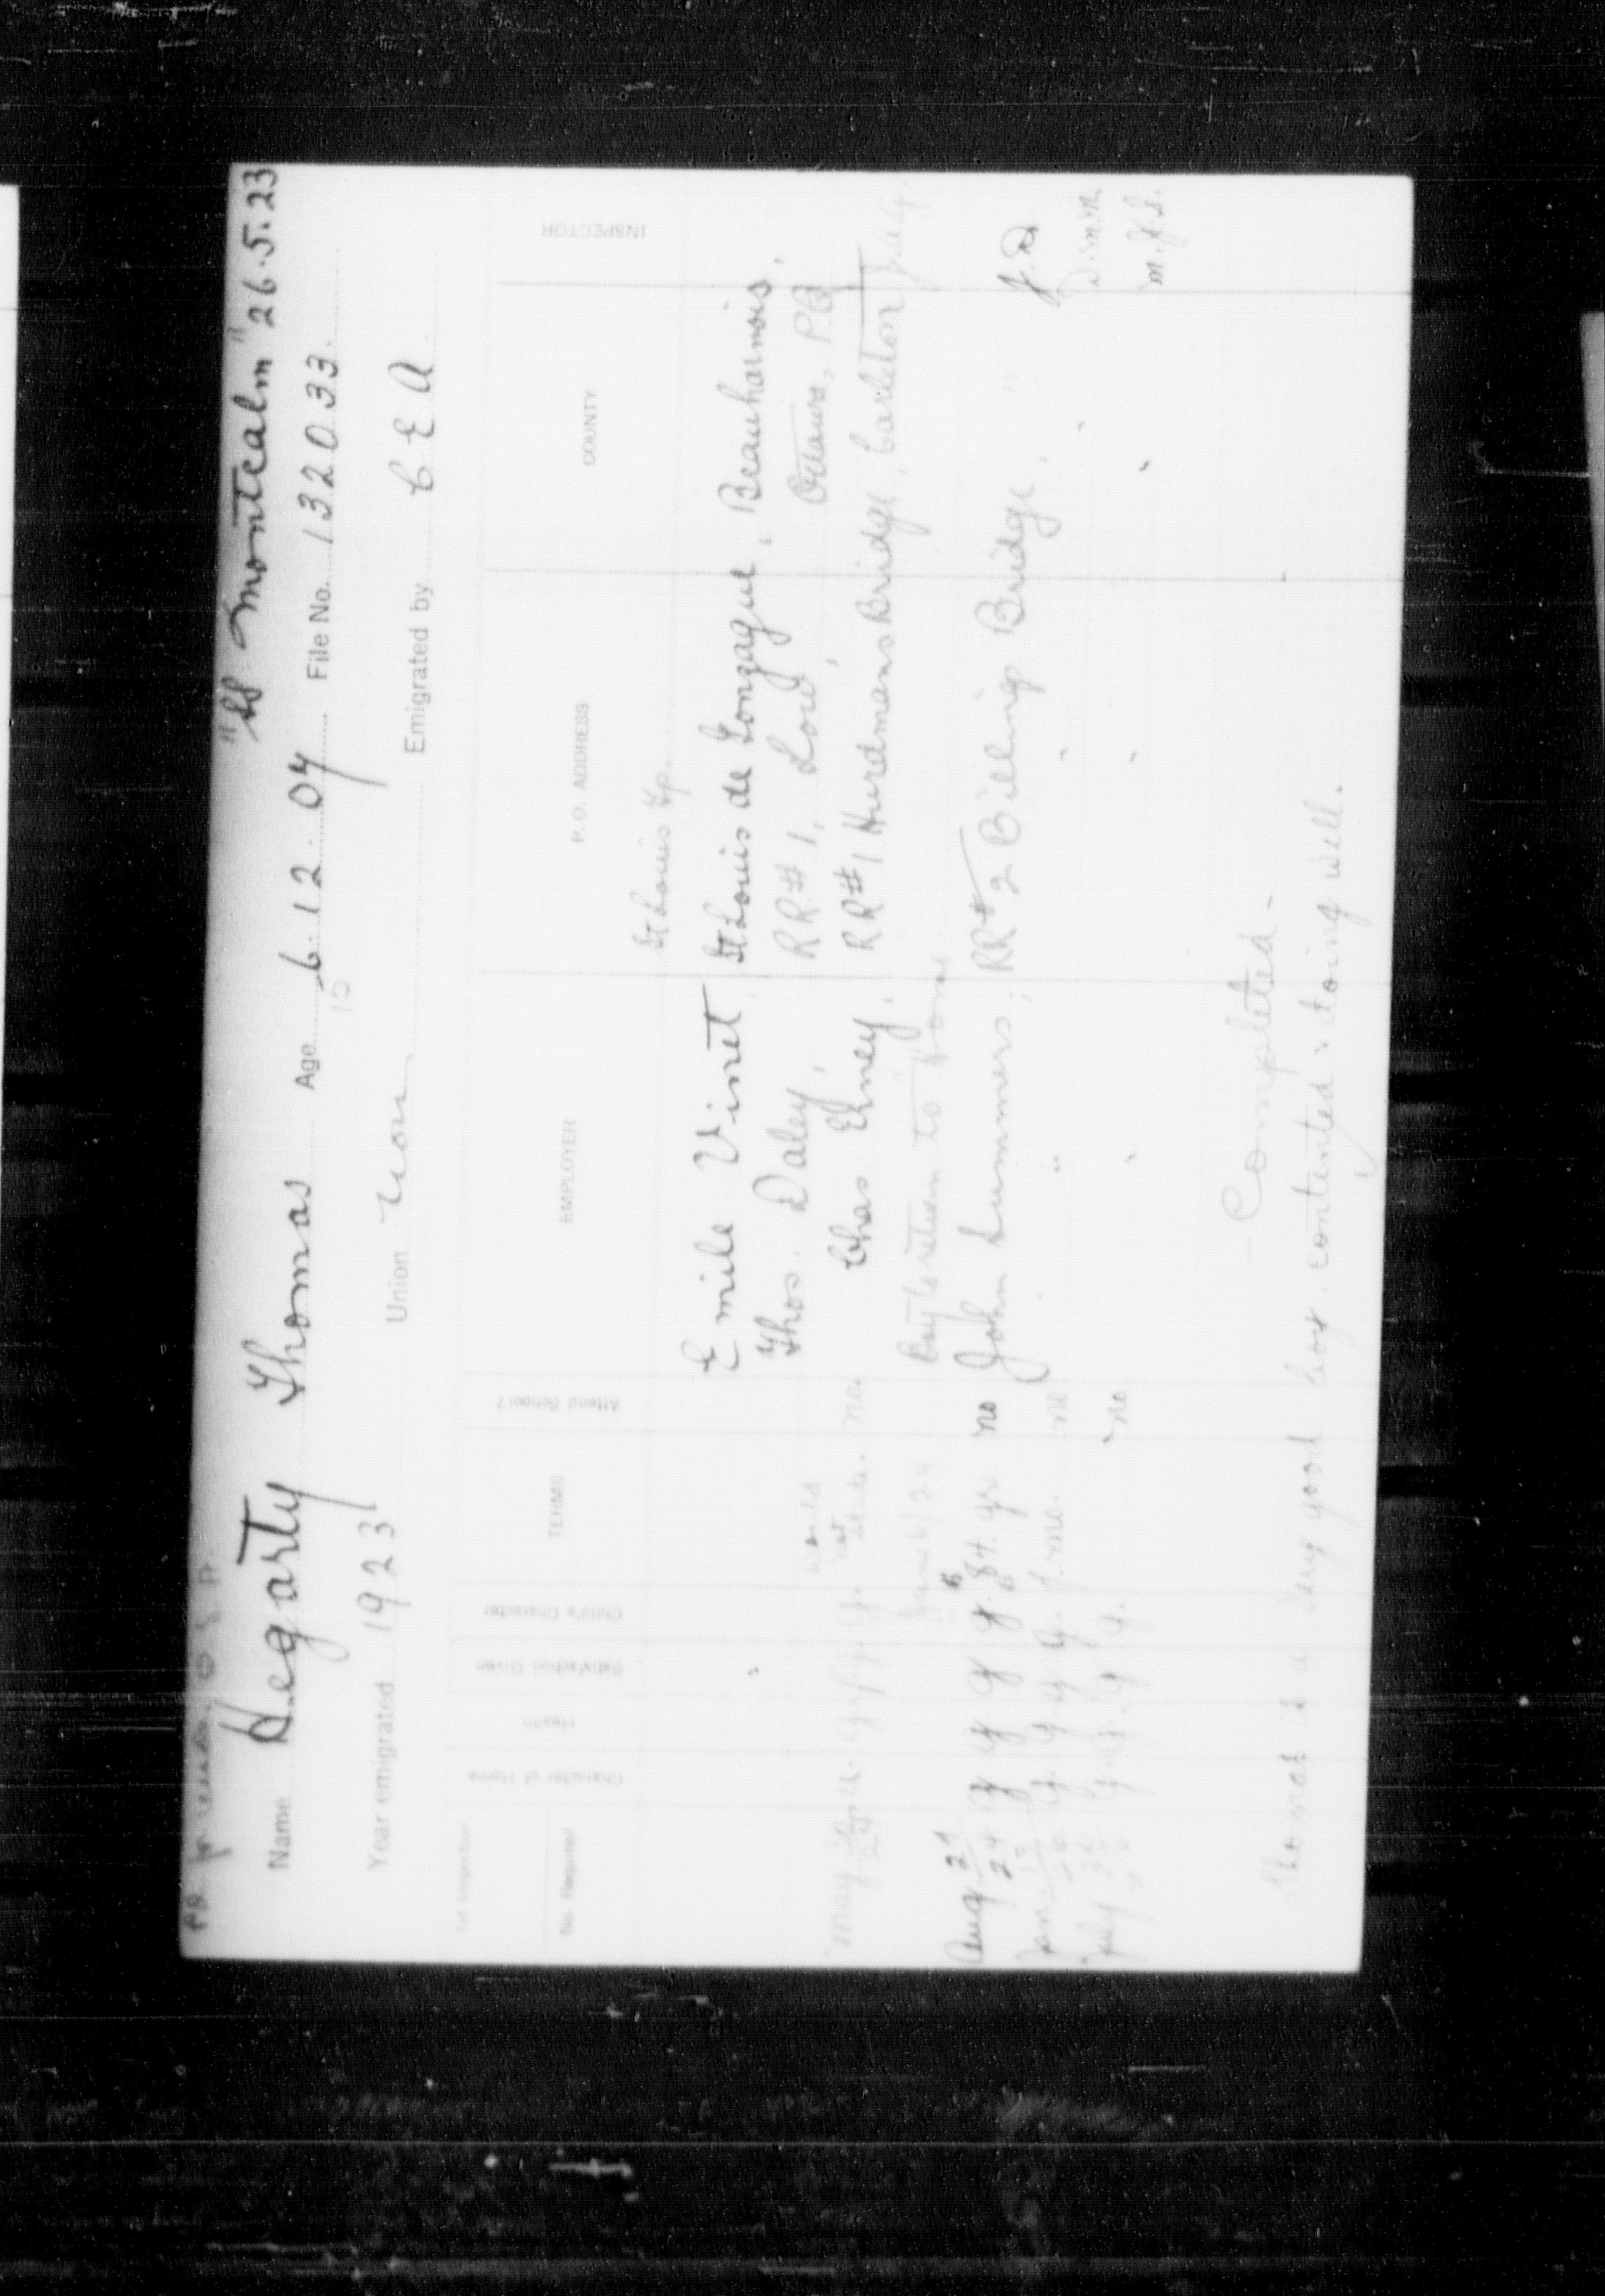 "SS Montcalm" 26.5.23
Name Hegarty Thomas Age 6.12.07 File No. 132033.
15
Year emigrated 1923 Union Non Emigrated by C E A
1st Inspection
No. Required Character of Home Health Satisfaction Given Child's Character TERMS Attend School? EMPLOYER P.O. ADDRESS COUNTY INSPECTOR
St Louis Stp.
Emile Vinet, St. Louis de Gonzague, Beauharnois,
Thos. Daley, RR#1, Low, Ottawa, P.Q.
May no. Chas Ehney, RR#1 Hurdmans Bridge, Carleton
Boy to return to Home
Aug 21/24 g g g g. yr. no John Summers, RR#2 Billings Bridge, " J.D
Jan g. g. g. g. no D.M.M
July g. g. g. g. no M.J.S.
- Completed -
Thomas is a very good boy. contented & doing well.